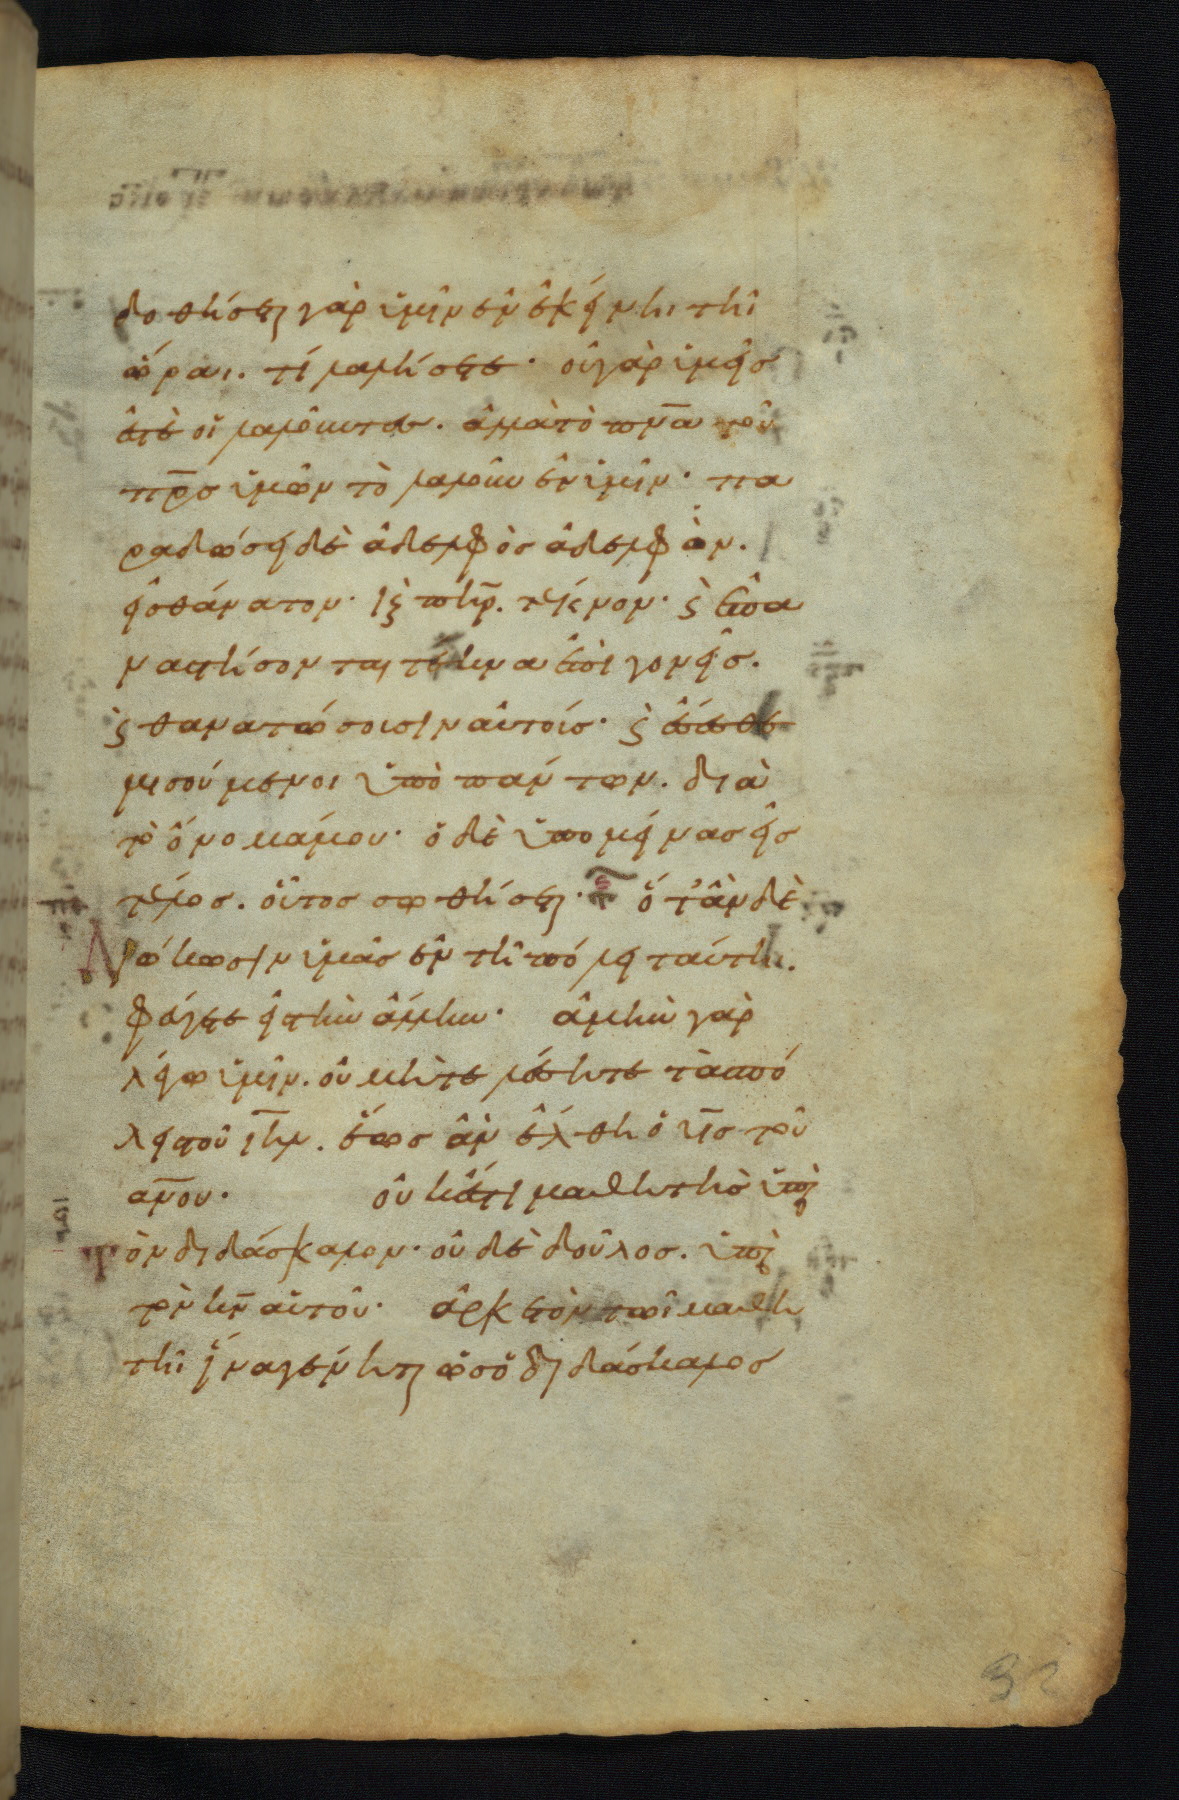 δοθήσεται γὰρ ὑμῖν ἐν ἐκείνηι τῆι
ὥραι. τί λαλήσετε· οὐ γὰρ ὑμεῖς
ἐστὲ οἱ λαλοῦντες. ἀλλὰ τὸ πν̅α τοῦ
πρ̅ς ὑμῶν τὸ λαλοῦν ἐν ὑμῖν· πα
ραδώσει δὲ ἀδελφὸς ἀδελφὸν.
εἰς θάνατον· καὶ πηρ̅. τέκνον· ϗ ἐπα
ναστήσονται τέκνα ἐπὶ γονεῖς.
ϗ θανατώσουσιν αὐτούς· ϗ ἔσεσθε
μισούμενοι ὑπὸ πάντων. διὰ
τὸ ὄνομά μου· ὁ δὲ ὑπομείνας εἰς
τέλος. οὗτος σωθήσεται· ὅταν δὲ
διώκωσιν ὑμᾶς ἐν τῆ πόλει ταύτη.
φεύγετε εἰς τὴν ἄλλην· ἀμὴν γὰρ
λέγω ὑμῖν. οὐ μὴ τελέσητε τὰς πό
λεις τοῦ ιη̅λ. ἕως ἂν ἔλθη ὁ υι̅ς τοῦ
αν̅ου. οὐκ ἔστι μαθητὴς ὑπὲρ
τὸν διδάσκαλον· οὐδὲ δοῦλος. ὑπὲρ
τὸν κν̅ αὐτοῦ· ἀρκετὸν τῶι μαθη
τῆι ἵνα γένηται ὡς ὁ διδάσκαλος
32